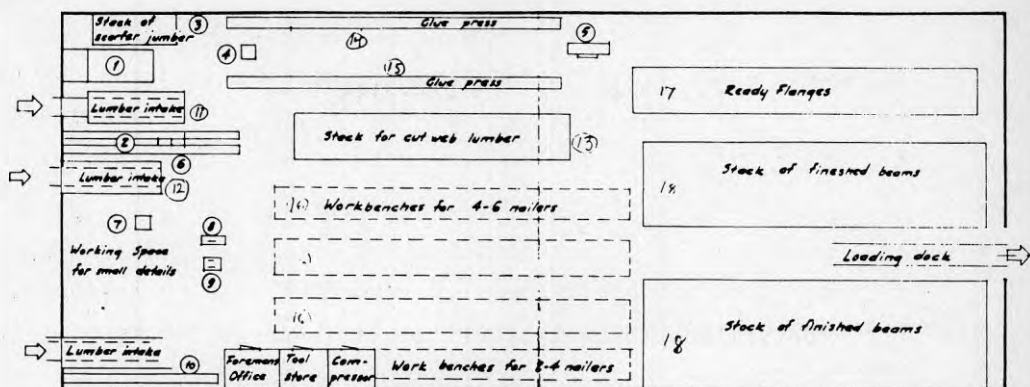 Stack of
scarter jumber
3
Glue press
14
4
5
1
15
Glue press
17 Ready Flanges
Lumber intake
11
2
Stack for cut web lumber
13
6
Lumber intake
12
Stack of fineshed beams
18
Workbenches for 4-6 nailers
7
8
Working Space
for small details
9
Loading dock
Stock of finished beams
18
Lumber intake
10
Foremans
Office
Tool
store
Com-
pressor
Work benches for 2-4 nailers